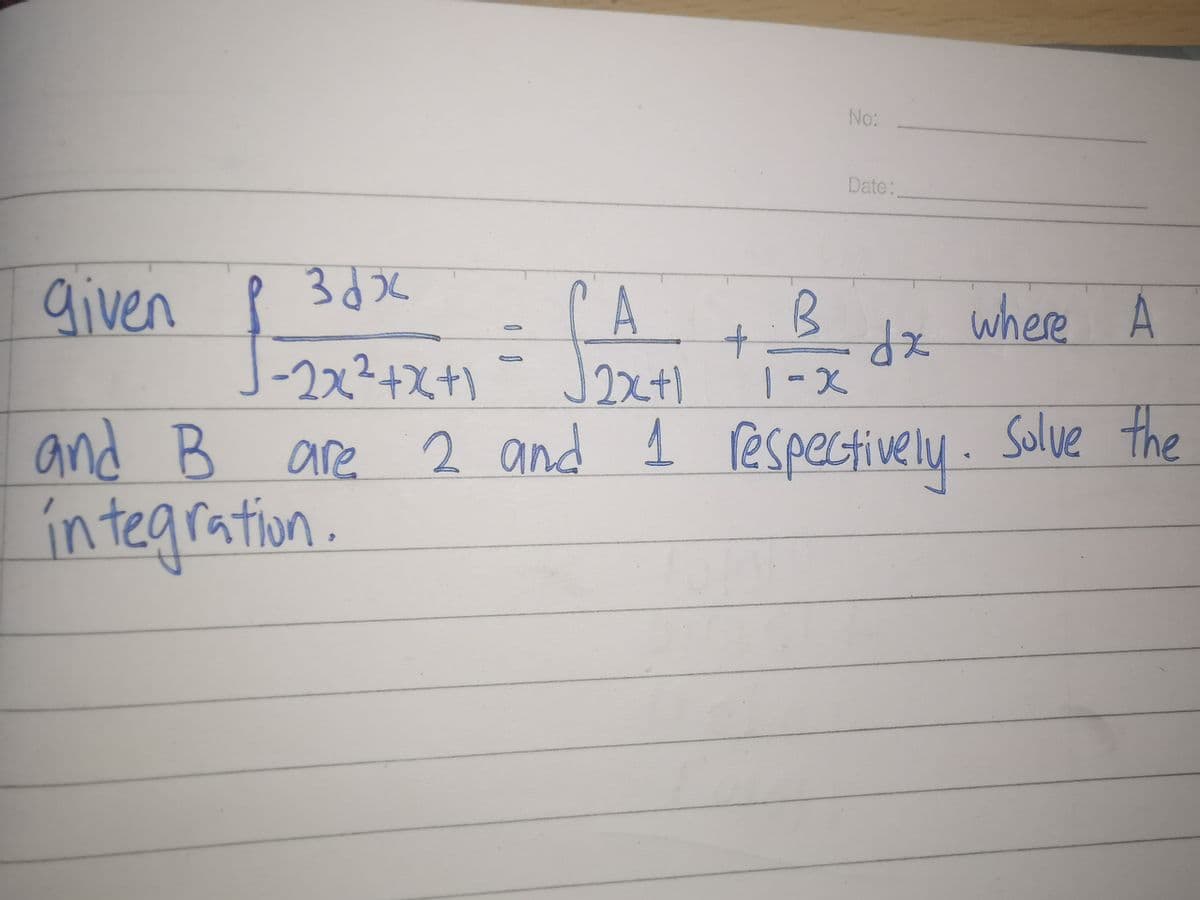 No:
Date:
given ∫ 3dx / -2x²+x+1 = ∫ A / 2x+1 + B / 1-x dx where A
and B are 2 and 1 respectively. Solve the
integration.